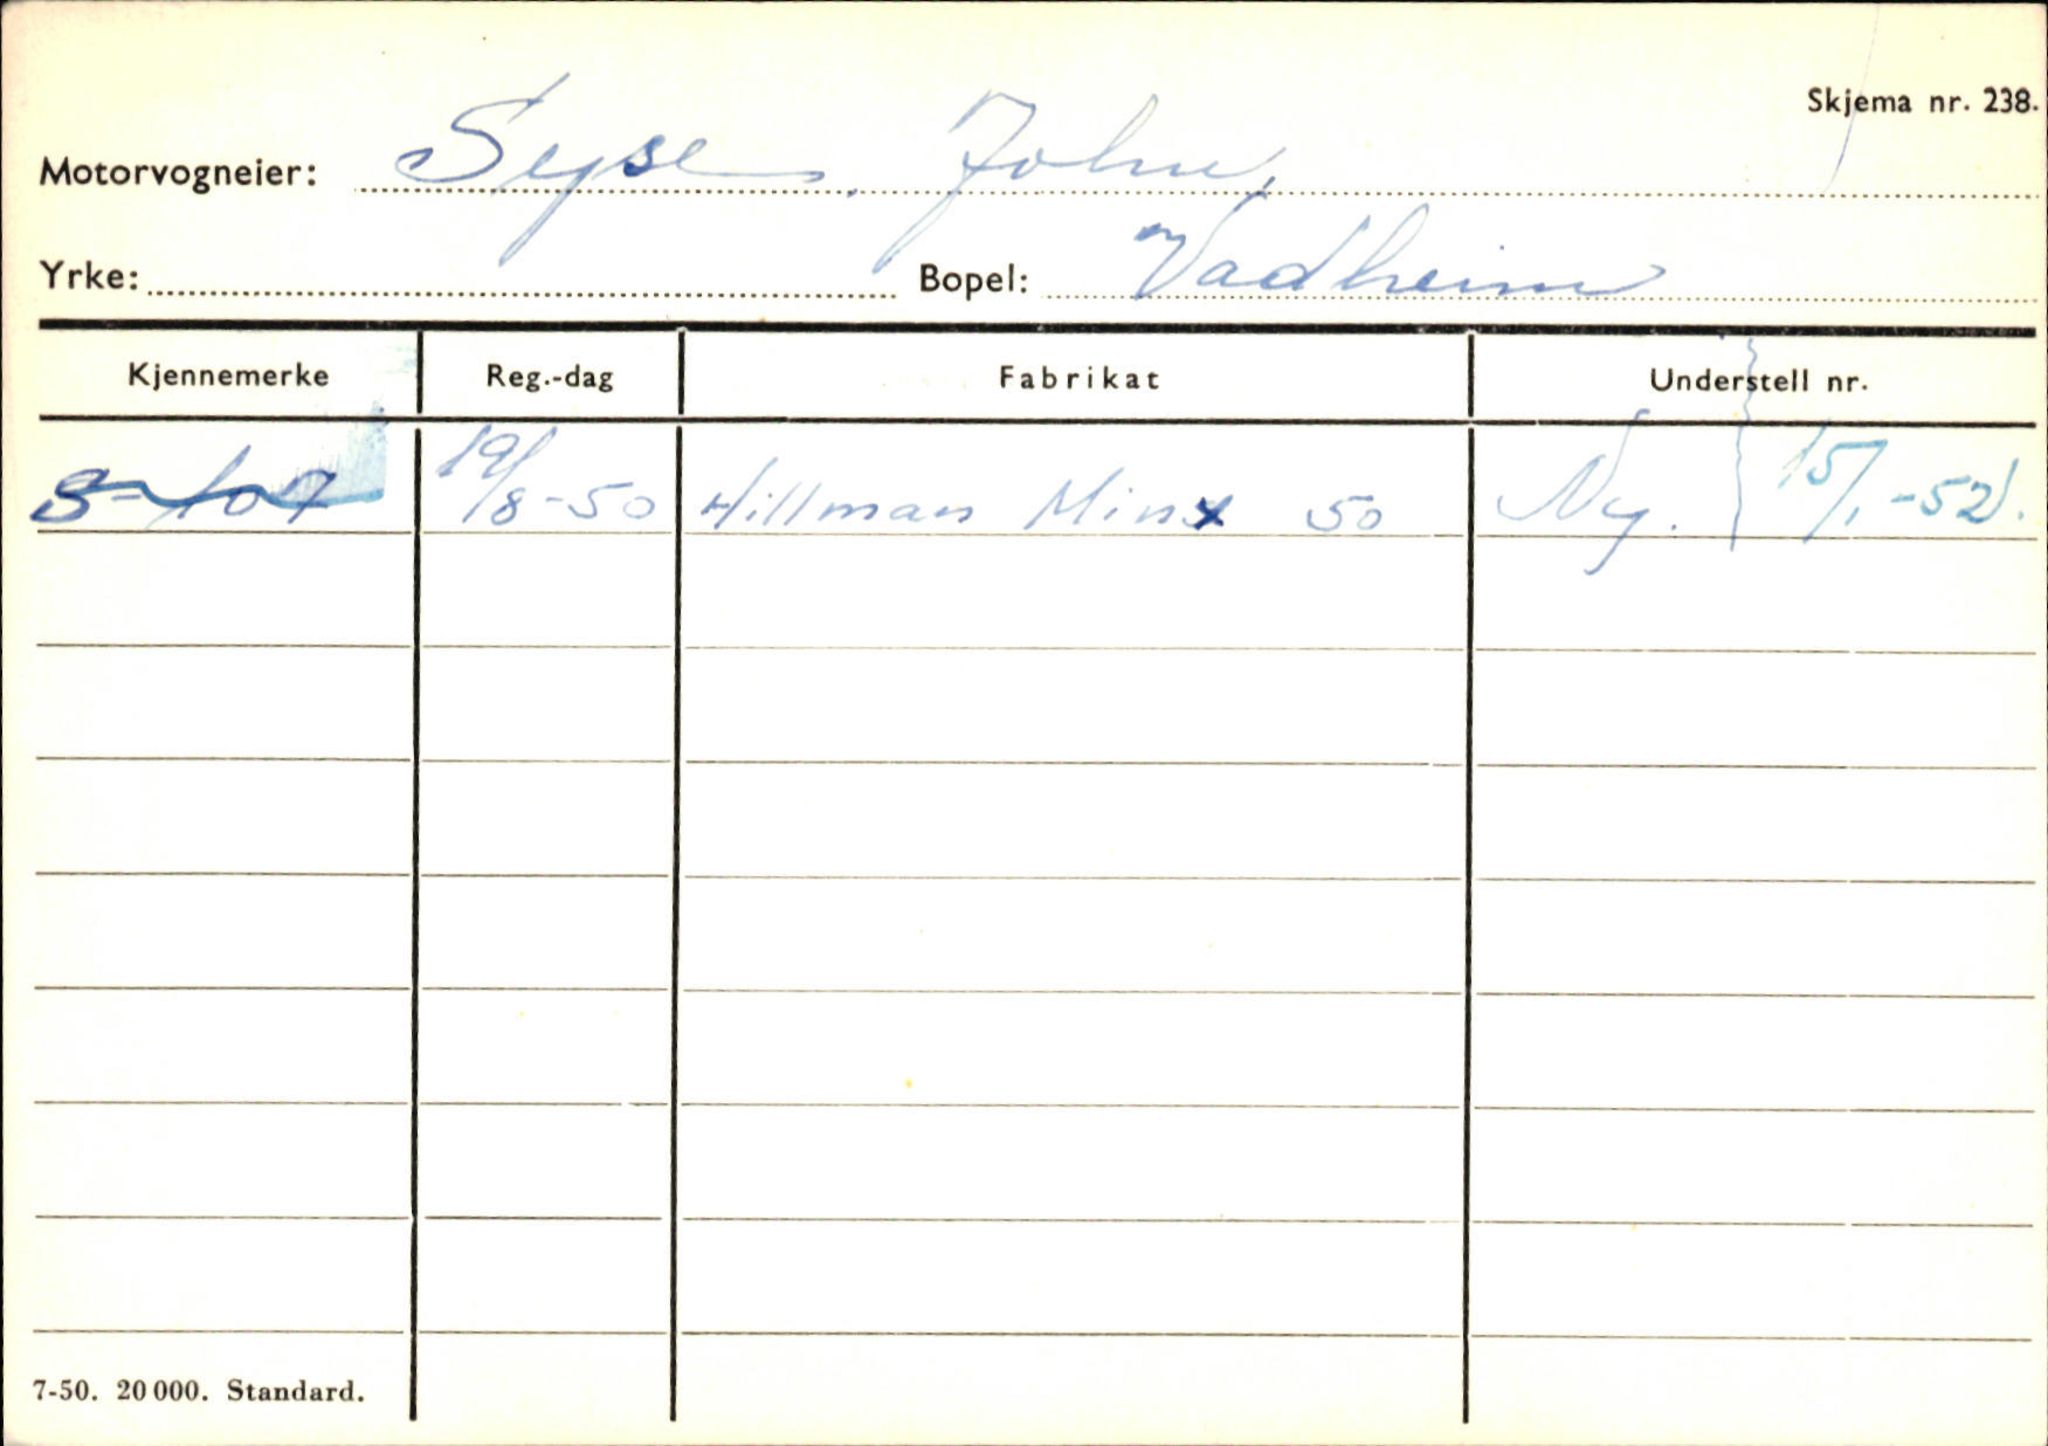 Skjema nr. 238.
Motorvogneier: Syse, John,
Yrke: Bopel: Vadheim
Kjennemerke Reg.-dag Fabrikat Understell nr.
S-107 19/8-50 Hillman Minx 50 Ny. 15/1-52.
7-50. 20 000. Standard.